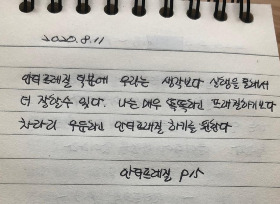 2020.8.11
안티프래질 덕분에 우리는 생각보다 실행을 통해서
더 잘할수 있다. 나는 매우 똑똑하고 프래질하기보다
차라리 우둔하고 안티프래질 하기를 원한다
안티프래질 P15